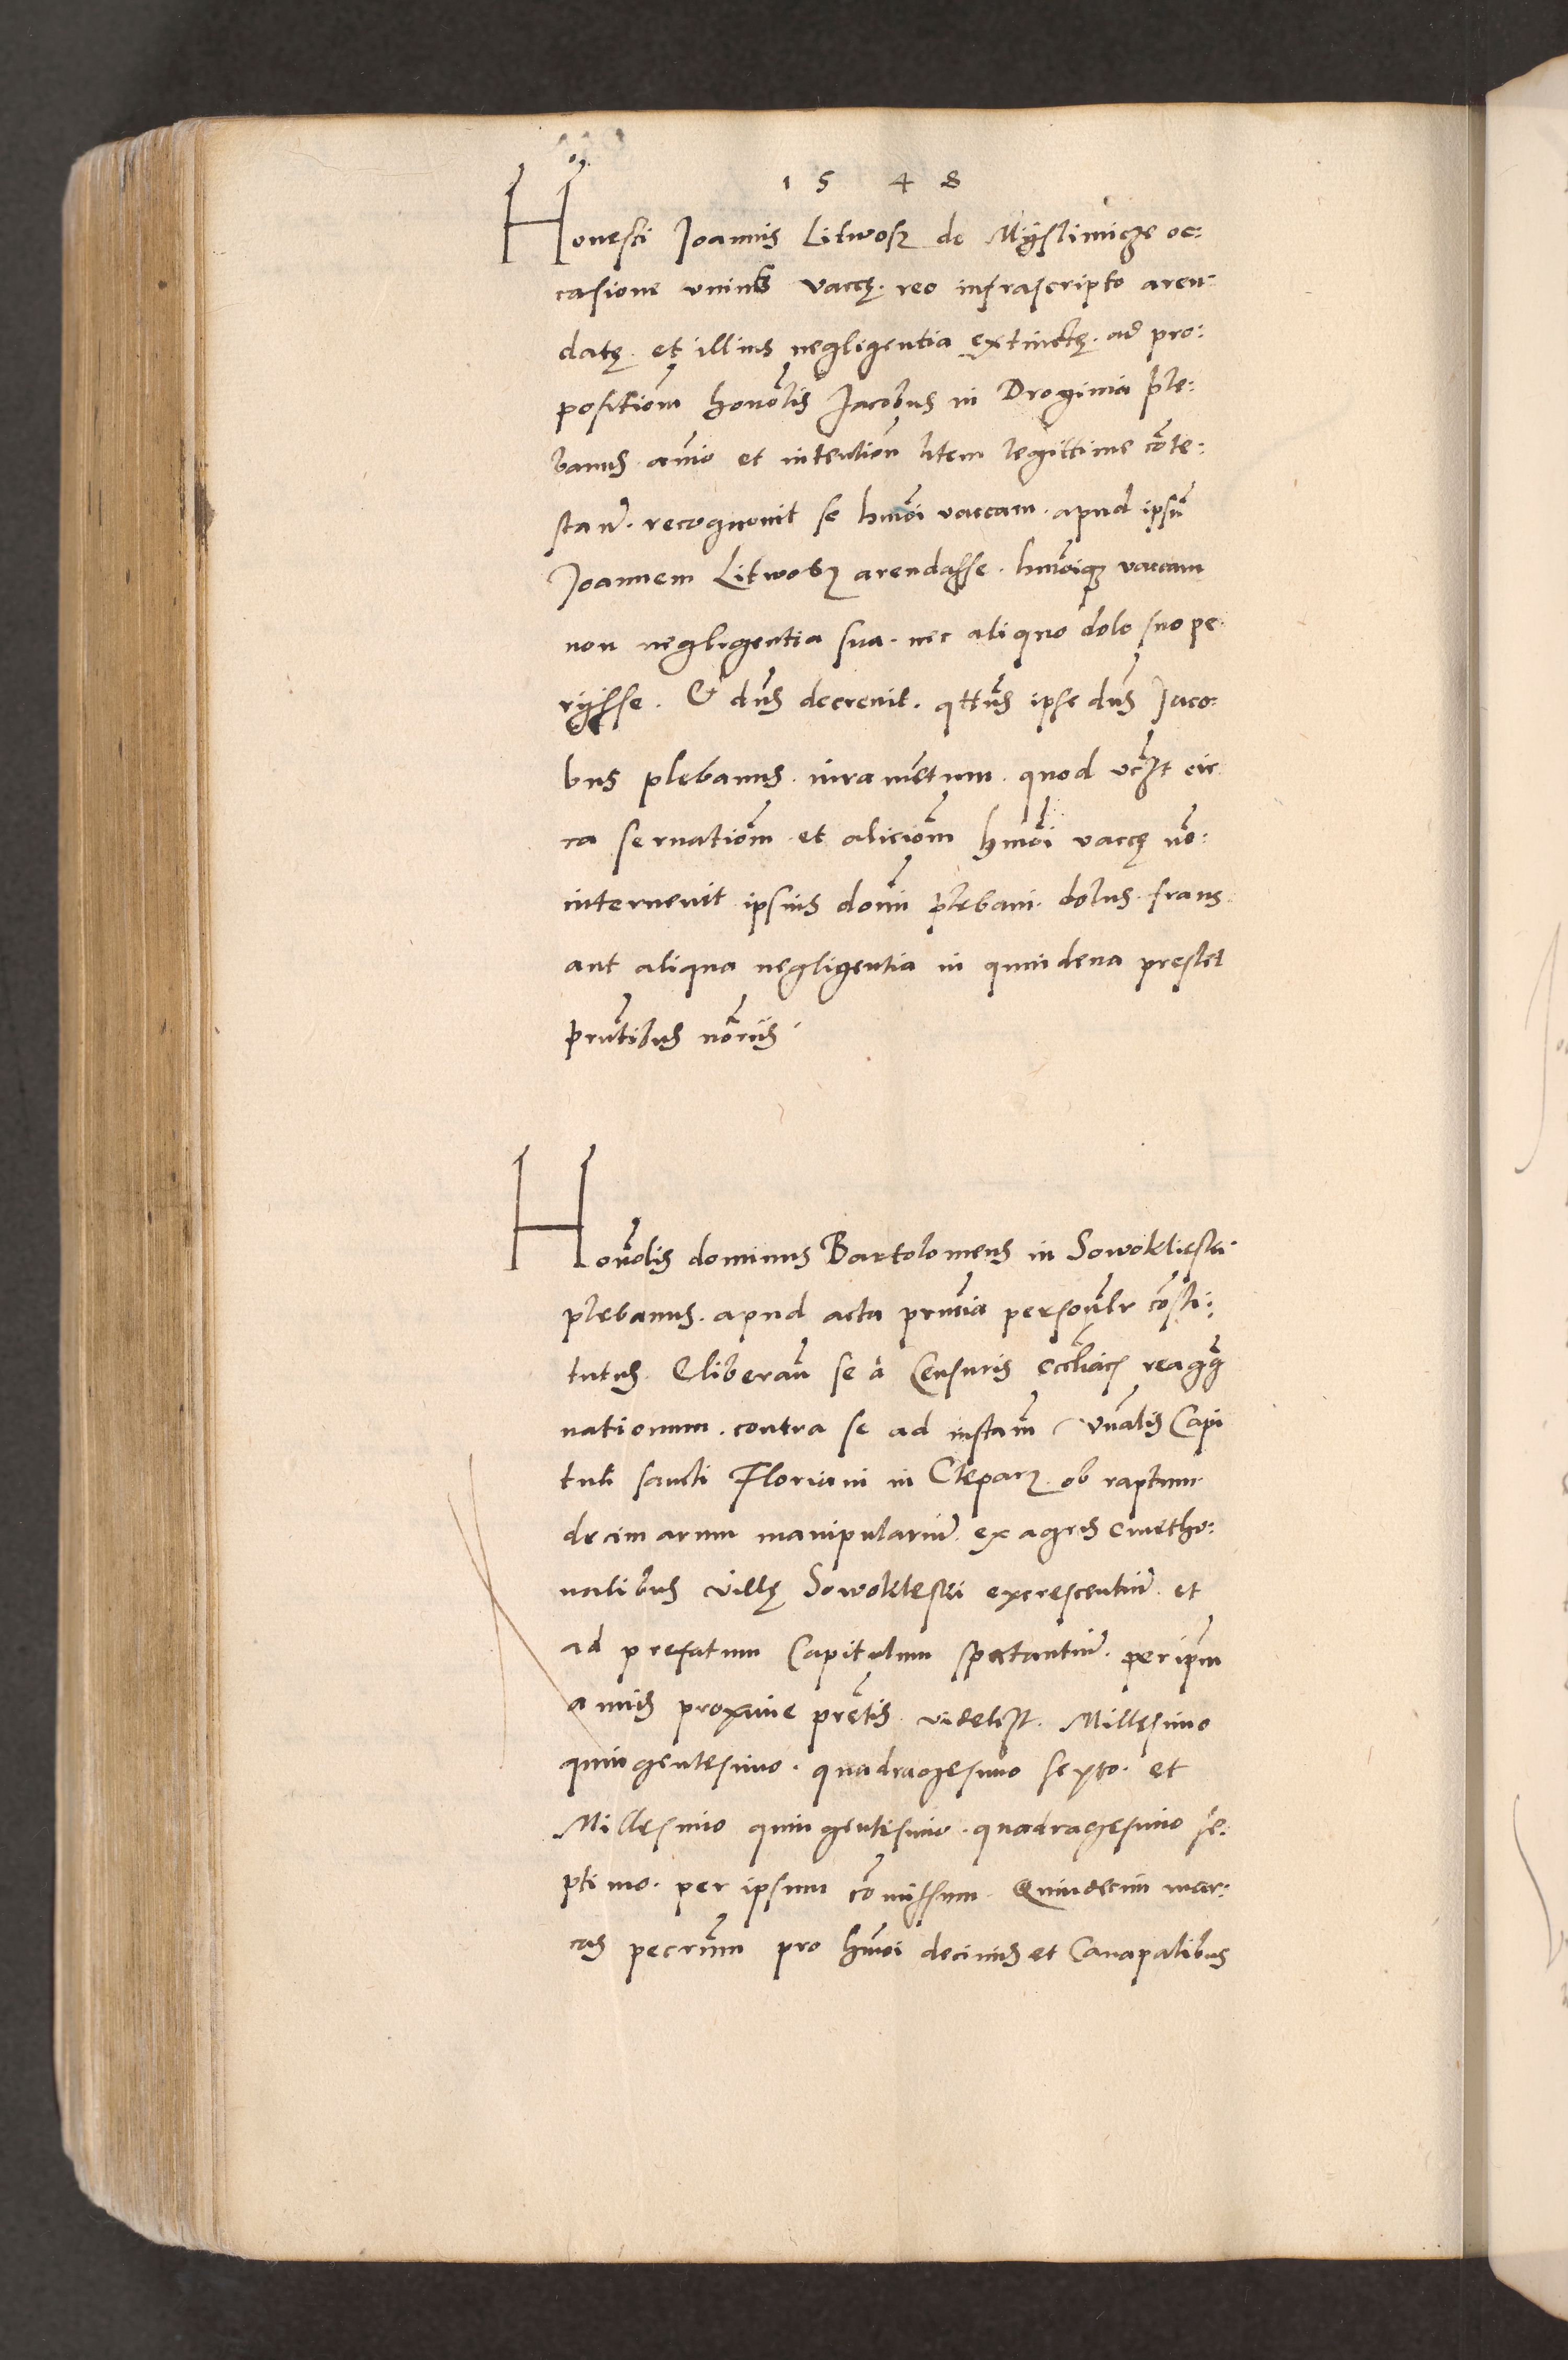 1548
Honesti Joannis Litwosz de Myslimicze oc:
casione unius vaccę. reo infrascripto aren:
datę. et illius negligentia extinctę. ad pro:
positiom honolis Jacobus in Droginia ple:
banus aīo et intentiom litem legittime cōte:
stan̄. recognovit se hmōi vaccam. apud ipsū
Joannem Litwosz arendasse. hmōiqz vaccam
non negligentia sua. nec aliquo dolo suo pe
rysse. Et dn̄s decrevit. qt̄us ipse dn̄s Jaco:
bus plebanus. iuramētum. quod vczt cir
ca servatiōm et aliciōm hmōi vaccę nō:
intervenit ipsius domī plebani. dolus. fraus
aut aliqua negligentia in quindena prestet
prn̄tibus nōriis
Honōlis dominus Bartolomeus in Sowoklieski
plebanus. apud acta prn̄tia persoūlr cōsti:
tutus. Eliberan̄ se à Censuris eccl̄iacis reagḡ
nationum. contra se ad instan̄ vn̄alis Capi
tuli sancti Floriani in Cleparz. ob raptum
decimarum manipulariū. ex agris cmetho:
nalibus villę Sowoklieski excrescentiū. et
ad prefatum Capitulum spectantiū. per ipm̄
annis proxime prēt̄is. videlzt. Millesimo
quingentesimo. quadragesimo sexto. et
Millesimo quingentesimo. quadragesimo se:
ptimo. per ipsum cōmissum. Quindecim mar:
cas pecn̄iarum pro hmōi decimis et Canapalibus